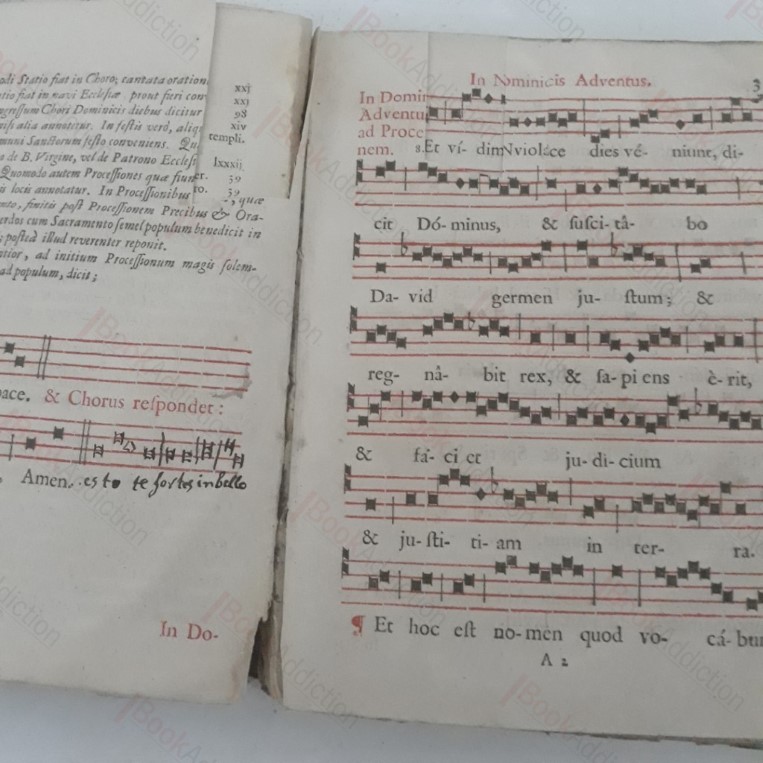 odi Statio fiat in Choro; cantata oration
tio fiat in navi Ecclesiæ prout fieri con
ngressum Chori Dominicis diebus dicitur
alia annotetur. In festis verò, aliq
muni Sanctorum festo conveniens. Qu
a de B. Virgine, vel de Patrono Eccles
Quomodo autem Processiones quæ fiun
is locis annotatur. In Processionibus
nto, finitis post Processionem Precibus & Ora-
erdos cum Sacramento semel populum benedicit in
; postea illud reverenter reponit.
ntior, ad initium Processionum magis solem-
ad populum, dicit;
xxj
xxj
98
xiv
templi.
lxxxij
er. 39
ro. 39
, quæ
pace. & Chorus respondet:
Amen. esto te fortes in bello
In Do-
In Nominicis Adventus. 3
In Domi
Adventu
ad Proce
nem.
Et ví- dies vé- niunt, di-
cit Dó- minus, & susci- tâ- bo
Da- vid germen ju- stum; &
reg- nâ- bit rex, & sa- pi ens è- rit,
& fá- ci et ju- di- cium
& ju- sti- ti- am in ter- ra.
¶ Et hoc est no- men quod vo- cá- bun
A 2